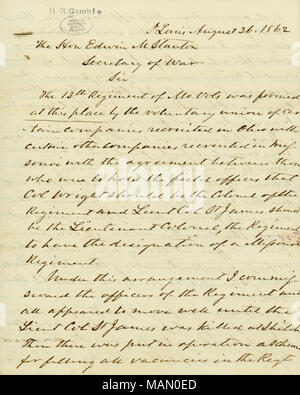 H R Gamble
St Louis August 26. 1862
The Hon Edwin M Stanton
Secretary of War
Sir
The 13th Regiment of Mo Vols was formed
at this place by the voluntary union of cer
tain companies recruited in Ohio with
certain other companies recruited in Mis
souri with the agreement between those
who were to hold the field offices that
Col Wright should be the Colonel of the
Regiment and Lieut Col St James should
be the Lieutenant Colonel, the Regiment
to have the designation of a Missouri
Regiment.
Under this arrangement I commis
sioned the officers of the Regiment and
all appeared to move well until the
Lieut Col St James was killed at Shiloh
Then there was put in operation a scheme
for filling all vacancies in the Regt
alamy
Image ID: MAN0ED
www.alamy.com